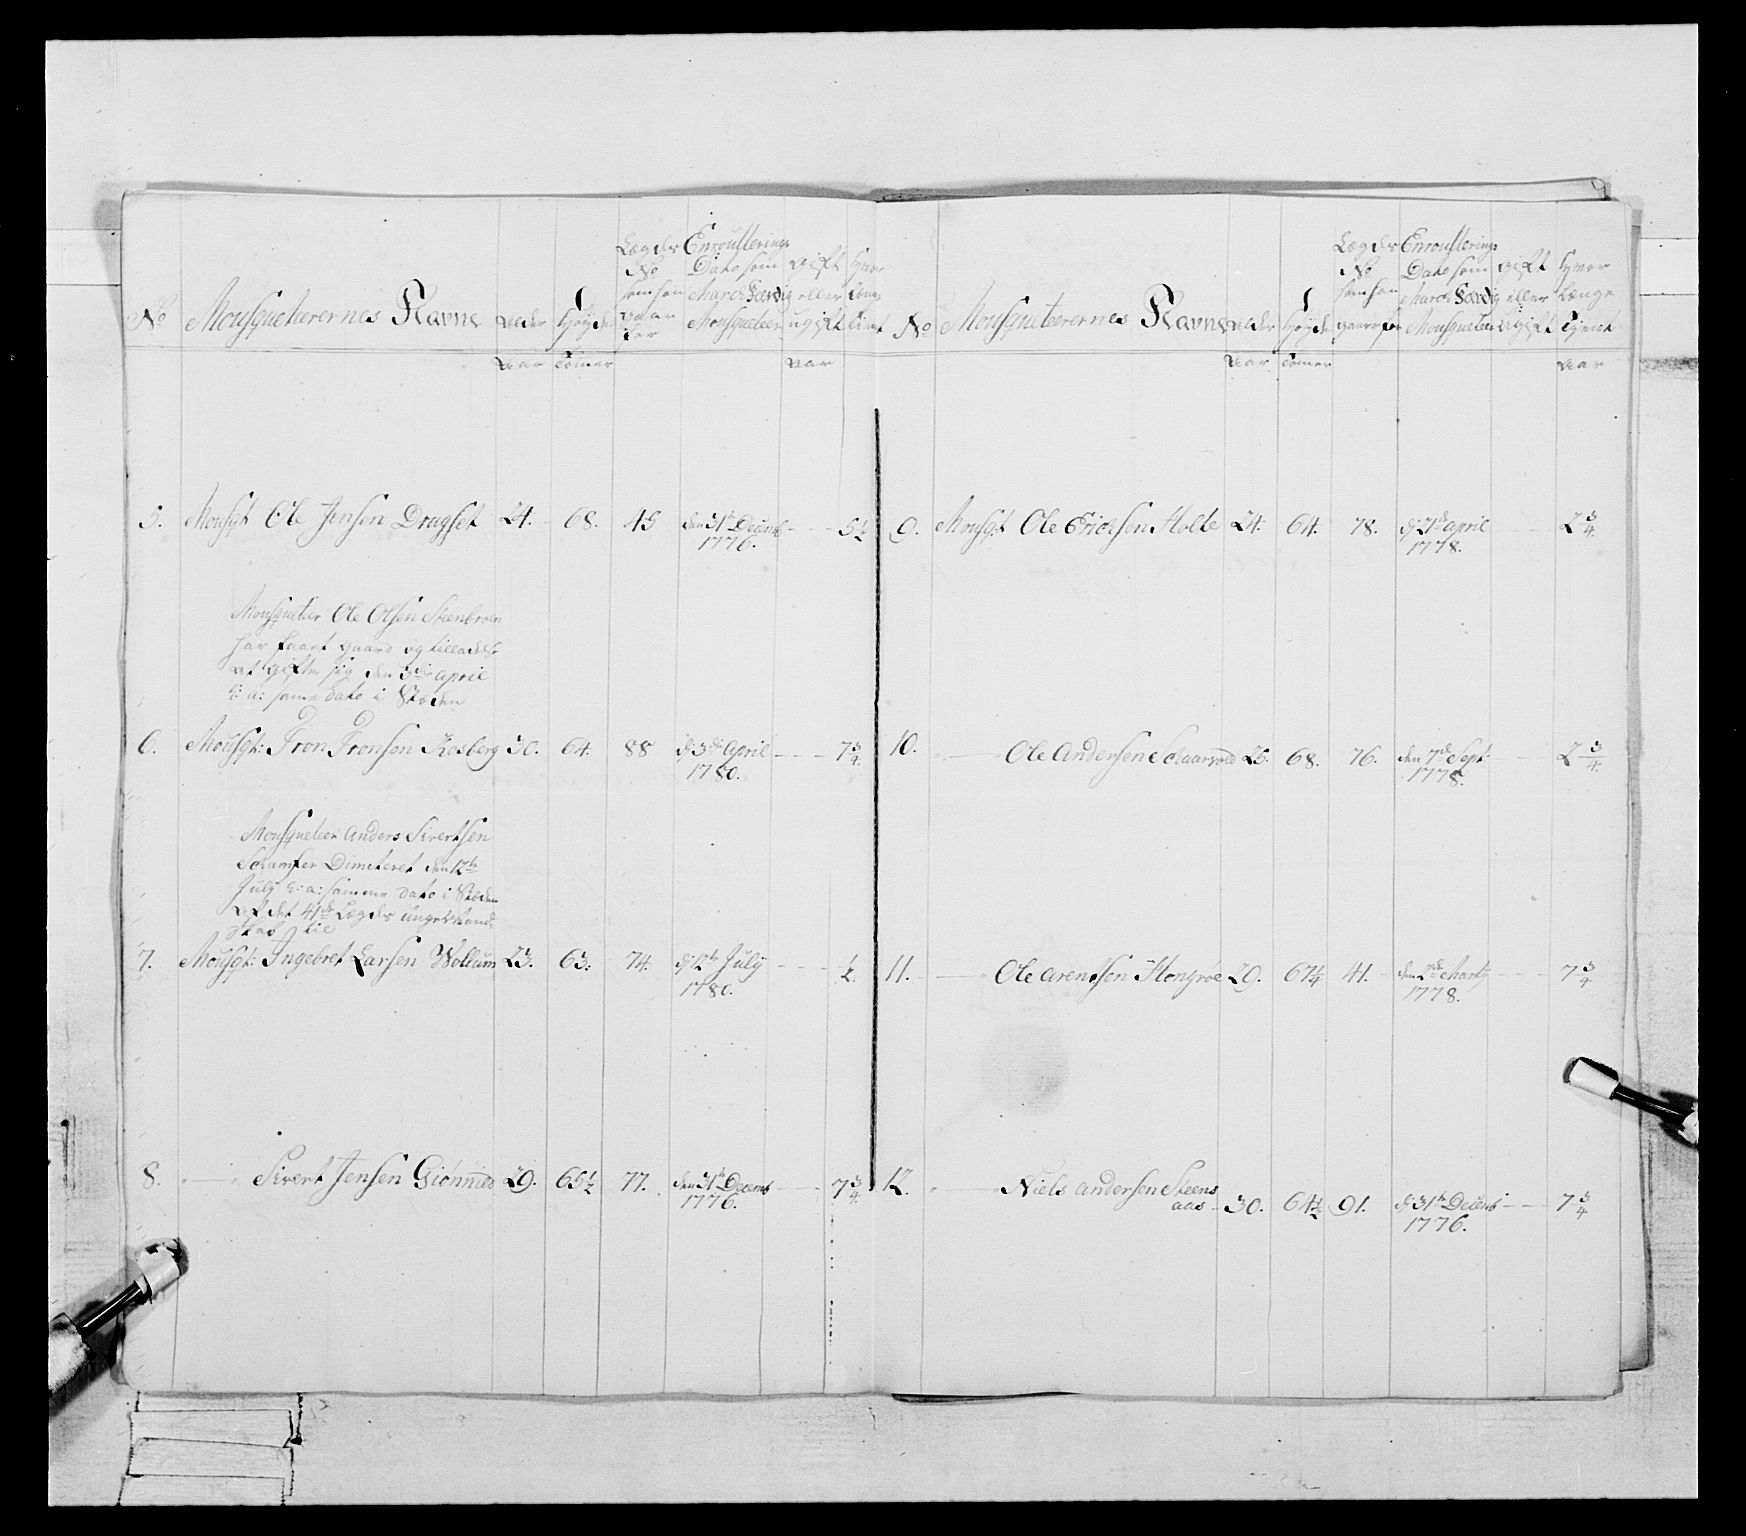 No Mousqueterernes Navne Alder Høyde Lægder No som han gaar for Enroullerings Dato som March Færdig Mousqueteer gift eller ugift hvor Længe tient
Aar Tomer Aar
5. Mousqt Ole Jensen Dragset 24. 68. 45 den 31te Decemb 1776. - - - 5 1/2
Mousqueteer Ole Olsen Steenbroen
har faaet gaard og tilladelse
at gifte sig den 3die April
h: a: samme Dato i Steden
6. Mousqt: Tron Tronsen Kosberg 30. 64. 88 d: 3die April 1780. - - - 7 3/4.
Mousqueteer Anders Sivertsen
Schamfer Dimiteret den 12te
July h: a: samme Dato i Steden
af det 41de Lægds unge Mand-
skab til
7. Mousqt: Ingebret Larsen Wollum 23. 63. 74. d: 12te July 1780. - - - 1/2.
8. Sivert Jensen Giønnæs 29. 65 1/2 77. den 31te Decemb 1776. - - - 7 3/4
No Mousqueteerernes Navne Alder Høyde Lægder No som han gaar for Enroullerings Dato som March Færdig Mousqueteer gift eller ugift hvor Længe Tient
Aar Tomer Aar
9. Mousqt Ole Erichsen Holte 24. 64. 78. d: 21de April 1778. 2 3/4.
10. Ole Andersen Schaarvold 25. 68. 76. den 7de Sept: 1778. 2 3/4.
11. Ole Arentsen Hongroe 29. 67 1/4 41. den 2de Marty 1778. 7 3/4
12. Niels Andersen Steens
aas 30. 64 1/2 91. d: 31te Decemb 1776. - - - 7 3/4